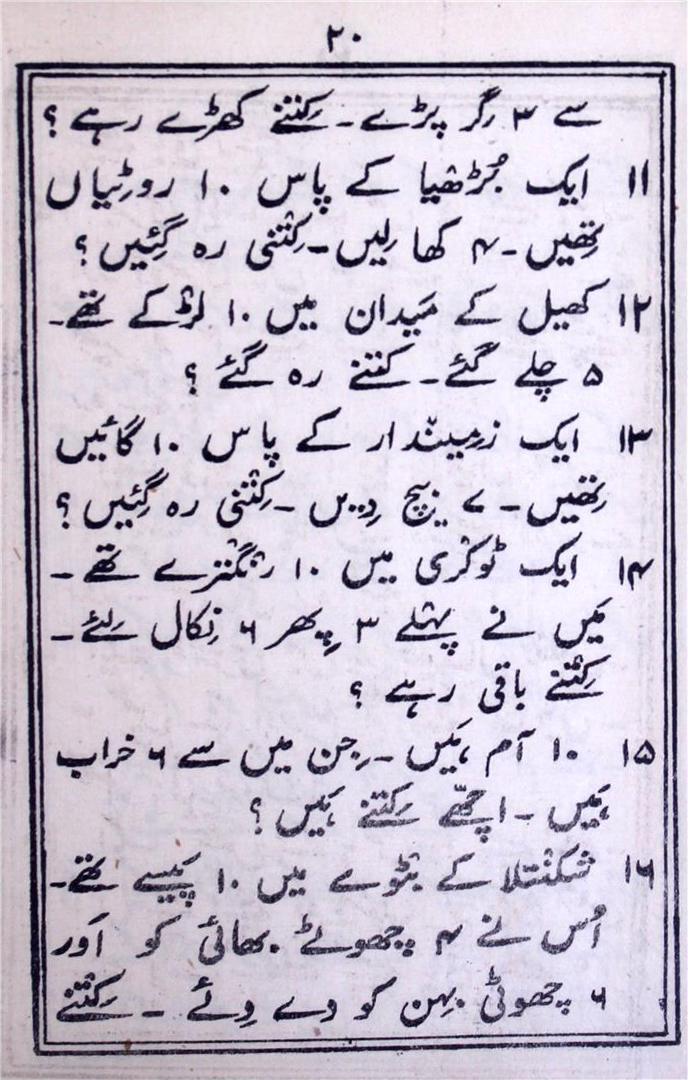 ۲۰
سے ۳ گِر پڑے ۔ کِتنے کھڑے رہے ؟
۱۱ ایک بُڑھیا کے پاس ۱۰ روٹِیاں
تِھیں ۔ ۴ کھا لِیں ۔ کِتنی رہ گئِیں ؟
۱۲ کھیل کے مَیدان میں ۱۰ لڑکے تھے ۔
۵ چلے گئے ۔ کتنے رہ گئے ؟
۱۳ ایک زمِیندار کے پاس ۱۰ گائیں
تِھیں ۔ ۷ بیچ دِیں ۔ کِتنی رہ گئِیں ؟
۱۴ ایک ٹوکری میں ۱۰ رنگترے تھے ۔
مَیں نے پہلے ۳ پِھر ۶ نِکال لِئے ۔
کِتنے باقی رہے ؟
۱۵ ۱۰ آم ہَیں ۔ جِن میں سے ۶ خراب
ہَیں ۔ اچھّے کِتنے ہَیں ؟
۱۶ شکنتلا کے بٹوے میں ۱۰ پَیسے تھے ۔
اُس نے ۴ چھوٹے بھائی کو اَور
۶ چھوٹی بہن کو دے دِئے ۔ کِتنے